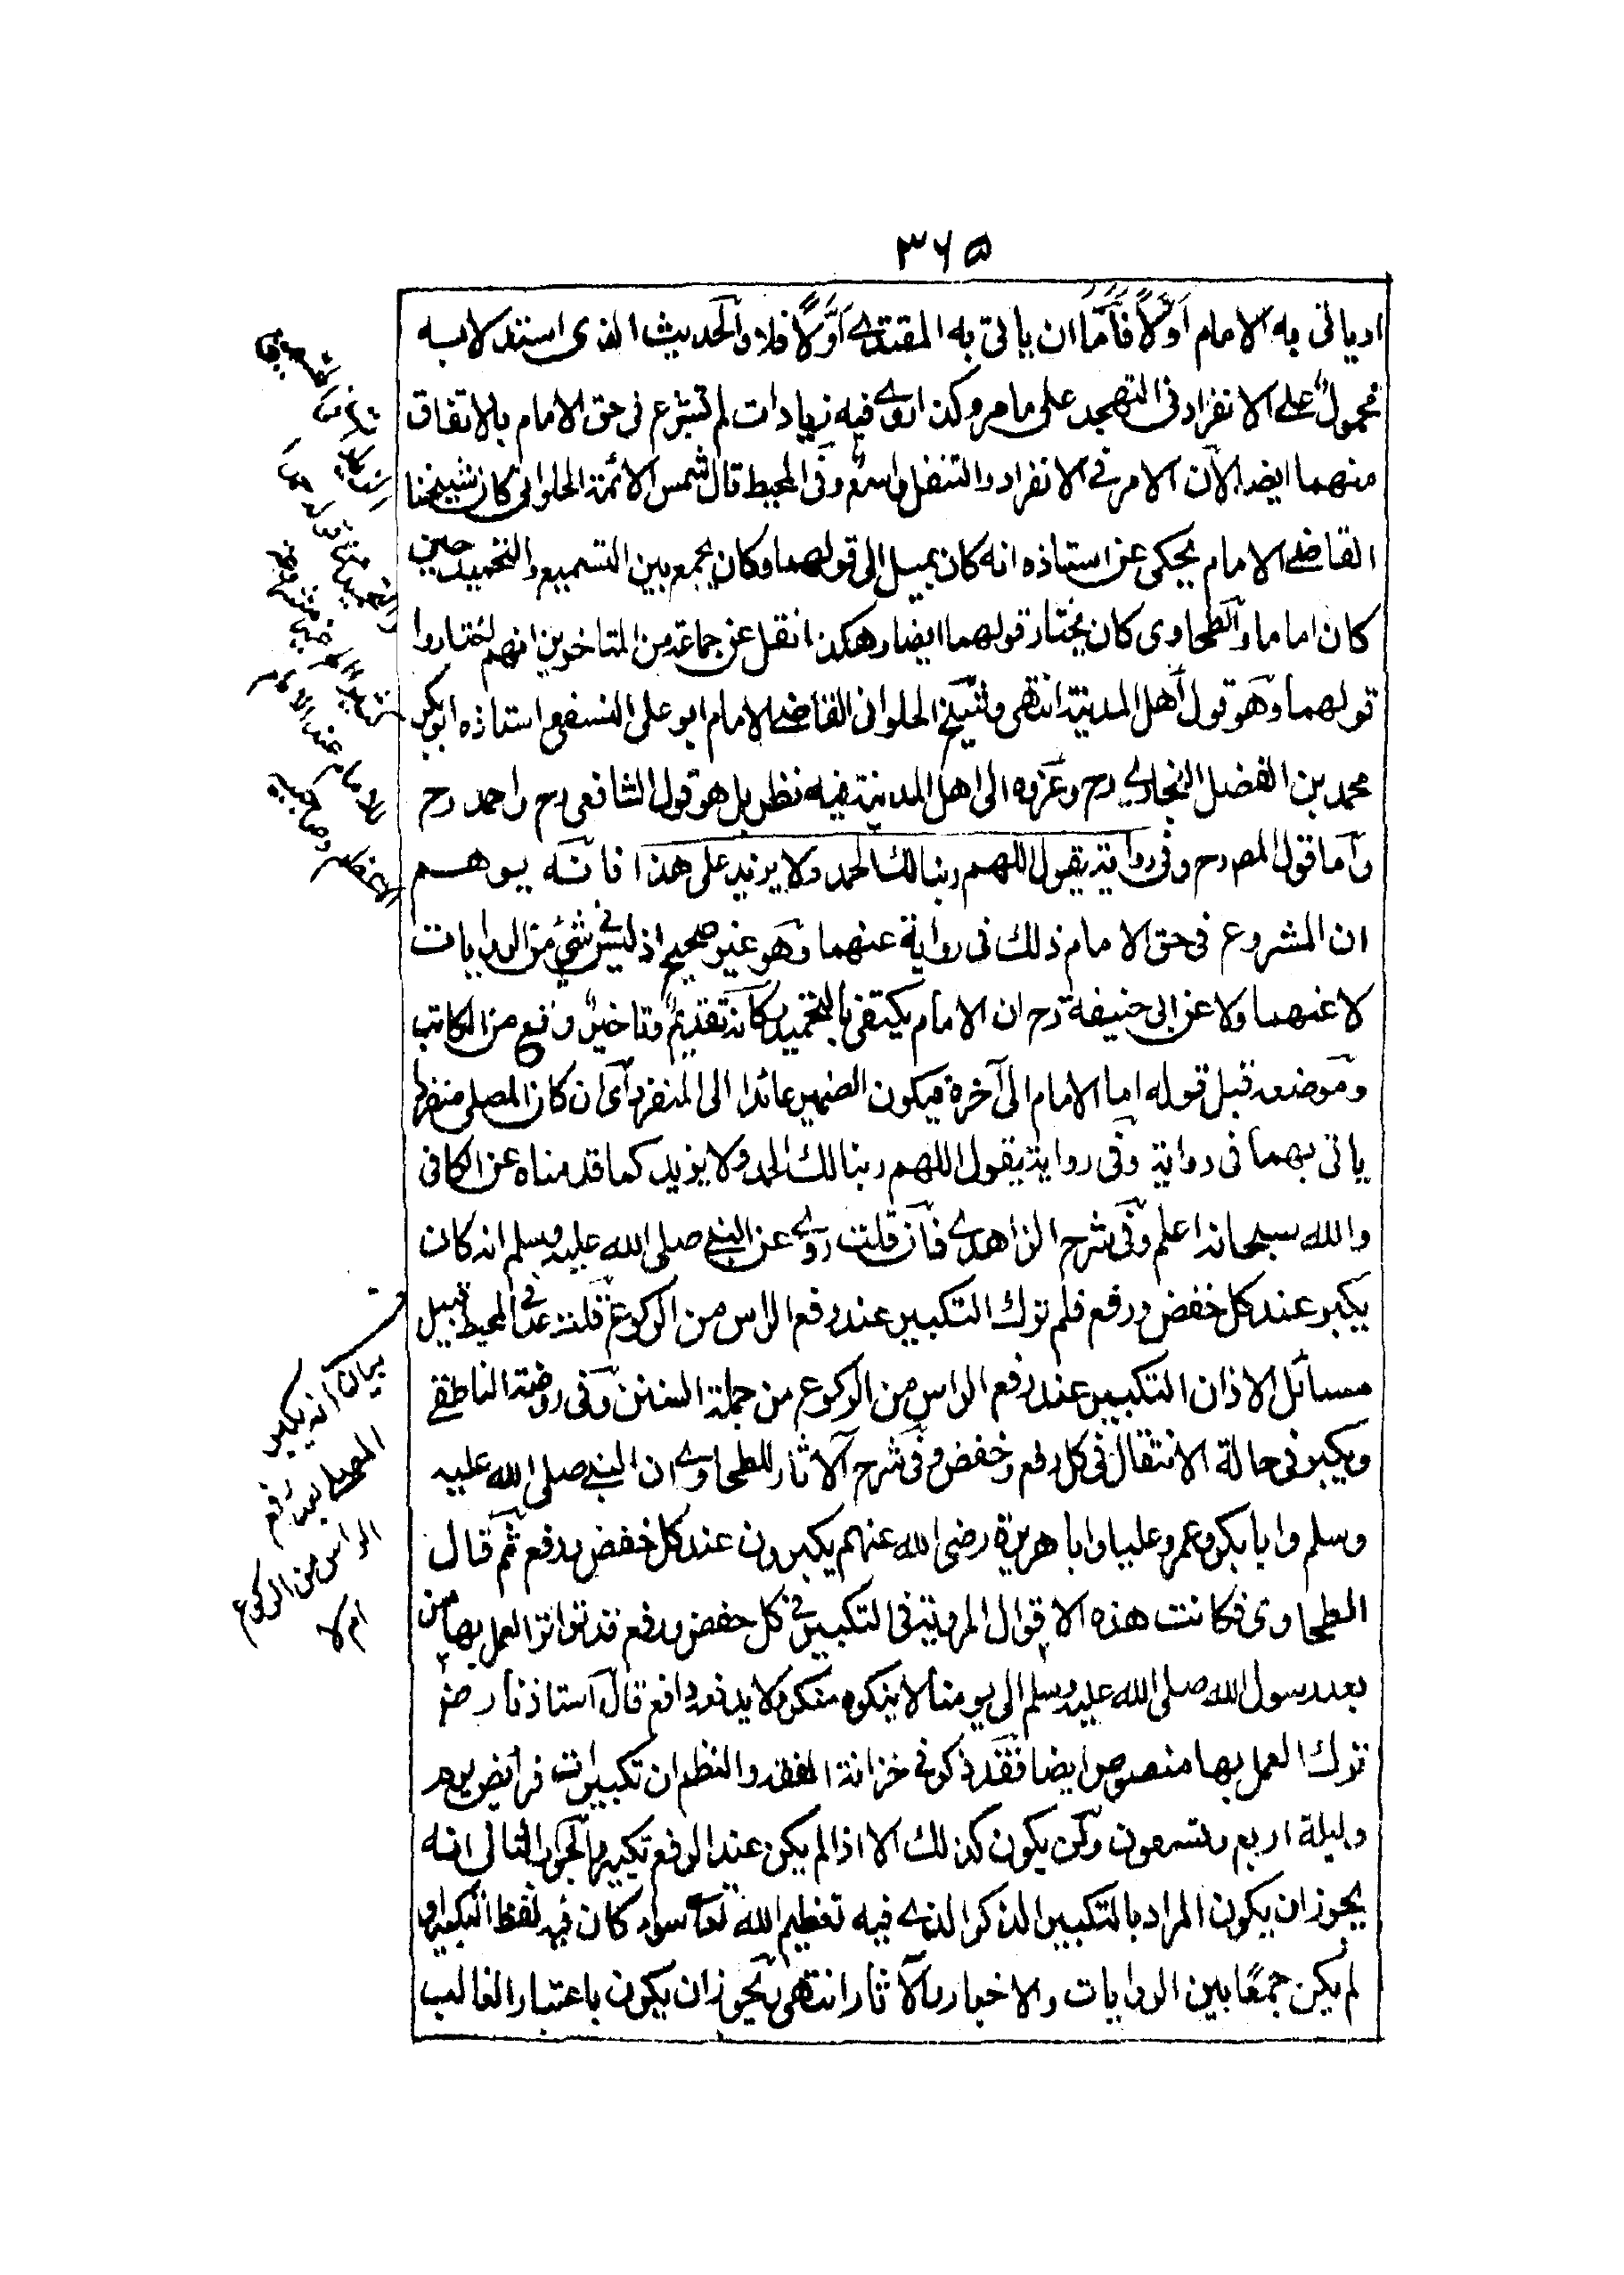 ۳۶۵
او ياتى به الامام اَوَّلًا فَاَمَّا ان ياتى به المقتدى اَوَّلًا فلا والحديث الذى استدلا به
محمولٌ على الانفراد فى التهجد على ما مر وكذا روى فيه زيادات لم تشرع فى حق الامام بالاتفاق
منهما ايضا لان الامر فى الانفراد والتنفل واسع وفى المحيط قال شمس الائمة الحلوانى كان شيخنا
القاضى الامام يحكى عن استاذه انه كان يميل الى قولهما وكان يجمع بين التسميع والتحميد حين
كان اماما والطحاوى كان يختار قولهما ايضا وهكذا نقل عن جماعة من المتاخرين انهم اختاروا
قولهما وهو قول اهل المدينة انتهى وشيخ الحلوانى القاضى الامام ابو على النسفى واستاذه ابو بكر
محمد بن الفضل البخارى رح وعزوه الى اهل المدينة فيه نظر بل هو قول الشافعى رح واحمد رح
واما قول المص رح وفى رواية يقول اللهم ربنا لك الحمد ولا يزيد على هذا فانه يوهم
ان المشروع فى حق الامام ذلك فى رواية عنهما وهو غير صحيح اذ ليس فى شئ من الروايات
لا عنهما ولا عن ابى حنيفة رح ان الامام يكتفى بالتحميد وكانه تقديمٌ وتاخيرٌ وقع من الكاتب
وموضعه قبل قوله اما الامام الى آخره فيكون الضمير عائدا الى المنفرد اى ان كان المصلى منفردا
ياتى بهما فى رواية وفى رواية يقول اللهم ربنا لك الحمد ولا يزيد كما قدمناه عن الكافى
والله سبحانه اعلم وفى شرح الزاهدى فان قلت روى عن النبى صلى الله عليه وسلم انه كان
يكبر عند كل خفض ورفع فلم ترك التكبير عند رفع الراس من الركوع قلت عد فى المحيط قبيل
مسائل الاذان التكبير عند رفع الراس من الركوع من جملة السنن وفى روضة الناطفى
ويكبر فى حالة الانتقال فى كل رفع وخفض وفى شرح الآثار للطحاوى ان النبى صلى الله عليه
وسلم وابا بكر وعمر وعليا وابا هريرة رضى الله عنهم يكبرون عند كل خفض ورفع ثم قال
الطحاوى فكانت هذه الاقوال المروية فى التكبير فى كل خفض ورفع قد تواتر العمل بها من
بعد رسول الله صلى الله عليه وسلم الى يومنا لا ينكره منكر ولا يدفعه دافع قال استاذنا رض
ترك العمل بها منصوص ايضا فقد ذكر فى خزانة الفقه والنظم ان تكبيرات فرائض يوم
وليلة اربع وتسعون ولن يكون كذلك الا اذا لم يكن عند الرفع تكبير والجواب الثانى انه
يجوز ان يكون المراد بالتكبير الذكر الذى فيه تعظيم الله تعا سواء كان فيه لفظ التكبير او
لم يكن جمعًا بين الروايات والاخبار والآثار انتهى ويجوز ان يكون باعتبار الغالب
بيان انه يكبر
المصلى بعد رفع
الراس من الركوع
ام لا